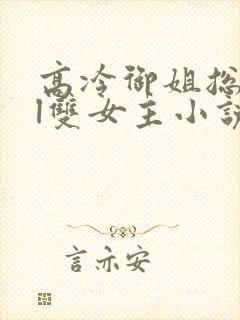 高冷御姐捴
|雙女主小說
言亦安